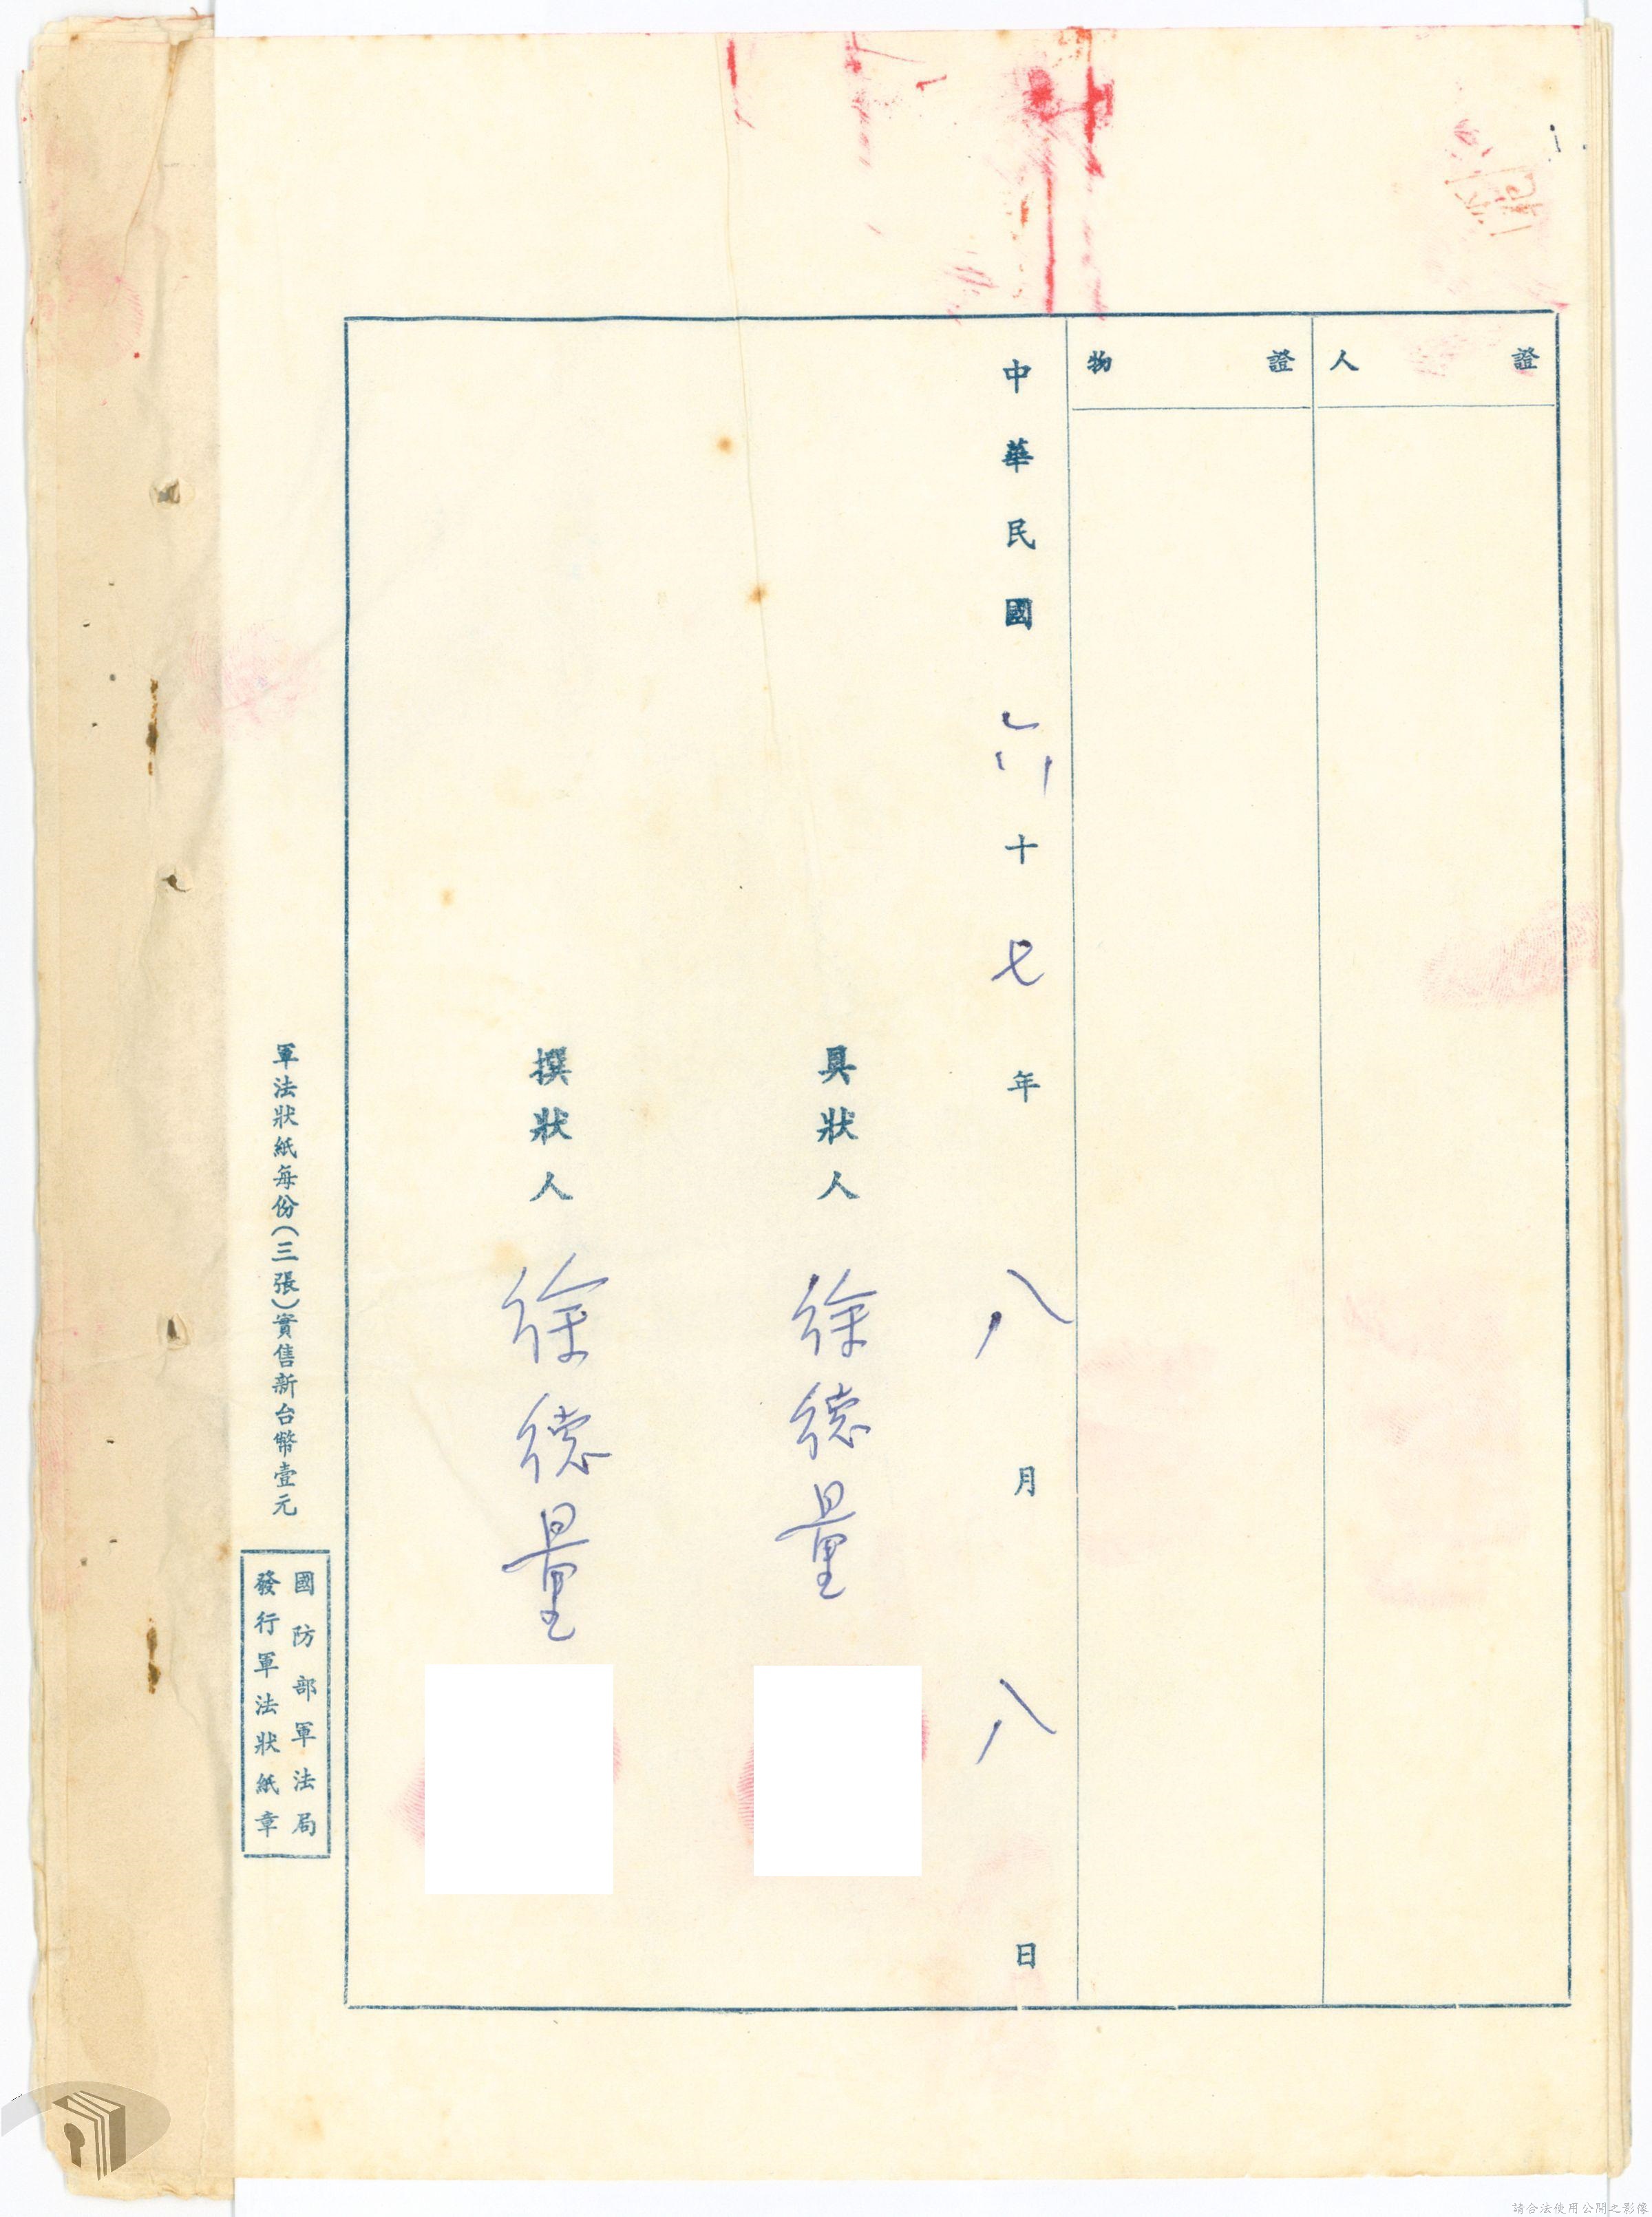 證人
證物
中華民國六十七年八月八日
具狀人 徐德量
撰狀人 徐德量
軍法狀紙每份(三張)實售新台幣壹元
國防部軍法局
發行軍法狀紙章
請合法使用公開之影像